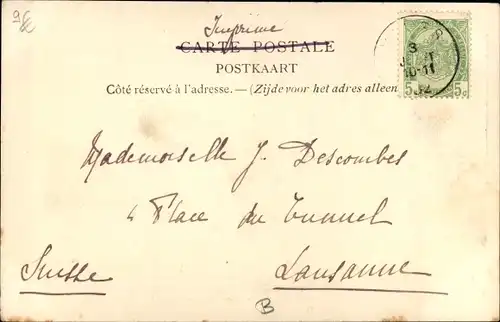 Imprimé
CARTE POSTALE
POSTKAART
Côté réservé à l'adresse. — (Zijde voor het adres alleen
Mademoiselle J. Descombes
4 Place du Tunnel
Suisse
Lausanne
B
3
10-11
5c 5c